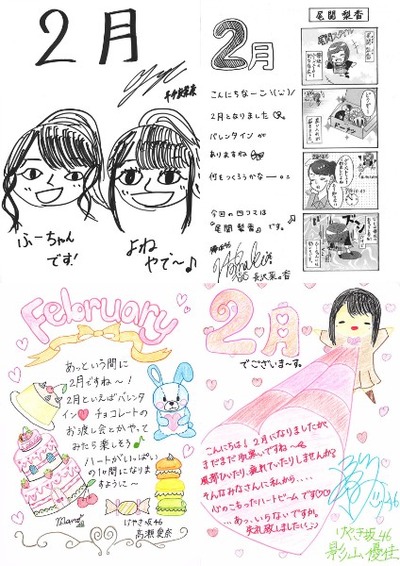 2月
ふーちゃん
です!
よね
やで〜♪
2月
こんにちなーこ\(´ω`)/
2月となりました
バレンタインが
ありますね
何をつくろうかなー。。
今回の四コマは
"尾関梨香"です。
欅坂46
長沢菜々香
尾関梨香
尾関スタイル
February
あっという間に
2月ですね〜!
2月といえばバレンタ
イン♥チョコレートの
お渡し会とかやって
みたら楽しそう♪
ハートがいっぱい
の1ヶ月になりま
すように〜
Mana
けやき坂46
高瀬愛奈
2月
でございま〜す。
こんにちは!2月になりましたが、
まだまだ寒いですね〜
風邪ひいたり、疲れていたりしませんか?
そんなみなさんに私から...
心のこもったハートビームです♡♡
...あっ、いらないですか。
失礼致しました(;;)
けやき坂46
影山優佳